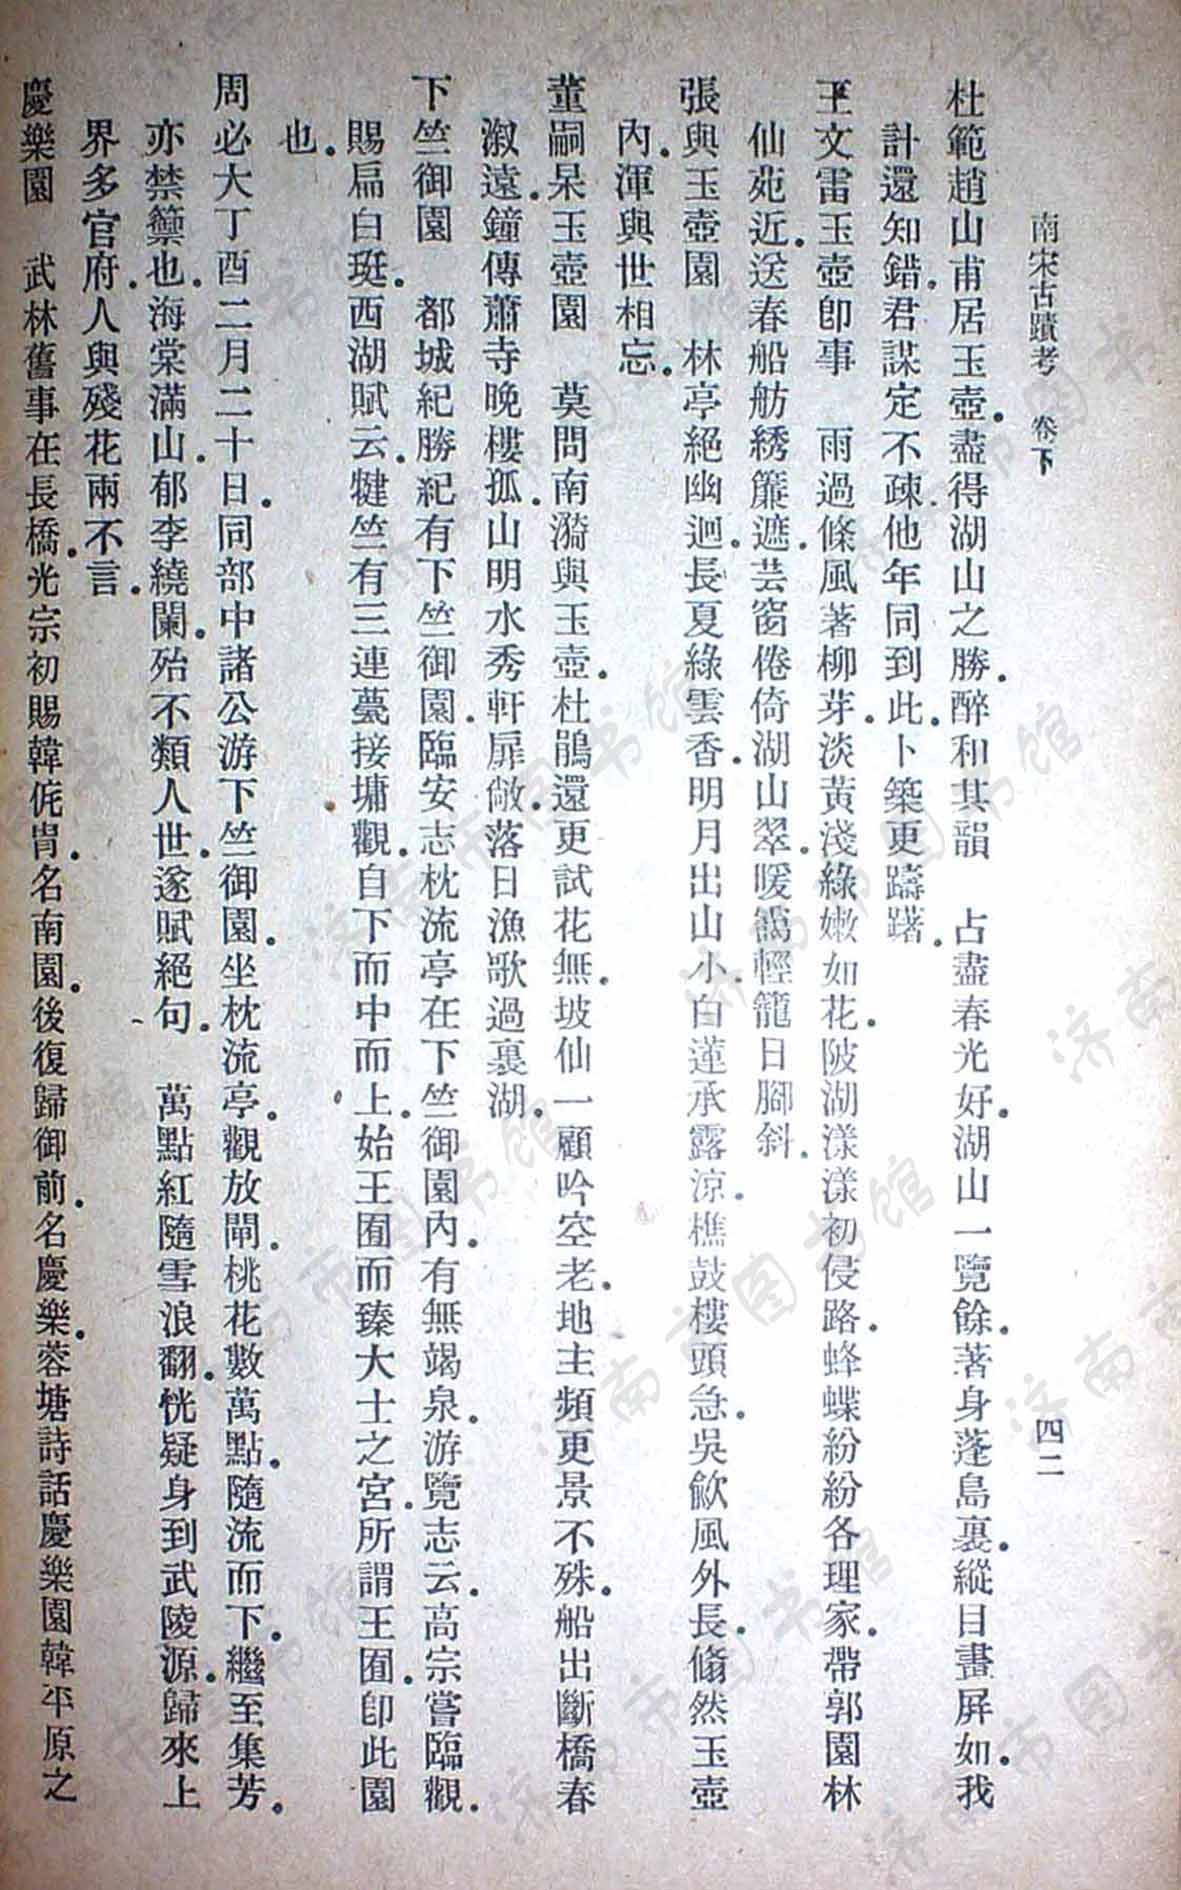 南宋古蹟考　卷下　四二
杜範趙山甫居玉壺。盡得湖山之勝。醉和其韻　占盡春光好。湖山一覽餘。著身蓬島裏。縱目畫屏如。我
計還知錯。君謀定不疎。他年同到此。卜築更躊躇。
王文雷玉壺卽事　雨過條風著柳芽。淡黃淺綠嫩如花。陂湖漾漾初侵路。蜂蝶紛紛各理家。帶郭園林
仙苑近。送春船舫綉簾遮。芸窗倦倚湖山翠。暖靄輕籠日腳斜。
張與玉壺園　林亭絕幽迥。長夏綠雲香。明月出山小。白蓮承露涼。樵鼓樓頭急。吳歈風外長。翛然玉壺
內。渾與世相忘。
董嗣杲玉壺園　莫問南漪與玉壺。杜鵑還更試花無。坡仙一顧吟空老。地主頻更景不殊。船出斷橋春
溆遠。鐘傳蕭寺晚樓孤。山明水秀軒扉敞。落日漁歌過裏湖。
下竺御園　都城紀勝。紀有下竺御園。臨安志枕流亭在下竺御園內。有無竭泉。游覽志云。高宗嘗臨觀。
賜扁白珽。西湖賦云。犍竺有三連甍接墉。觀自下而中而上。始王囿而臻大士之宮。所謂王囿。卽此園
也。
周必大丁酉二月二十日。同部中諸公游下竺御園。坐枕流亭。觀放閘。桃花數萬點。隨流而下。繼至集芳。
亦禁籞也。海棠滿山。郁李繞闌。殆不類人世。遂賦絕句。　萬點紅隨雪浪翻。恍疑身到武陵源。歸來上
界多官府。人與殘花兩不言。
慶樂園　武林舊事在長橋。光宗初賜韓侂胄。名南園。後復歸御前。名慶樂。蓉塘詩話慶樂園韓平原之